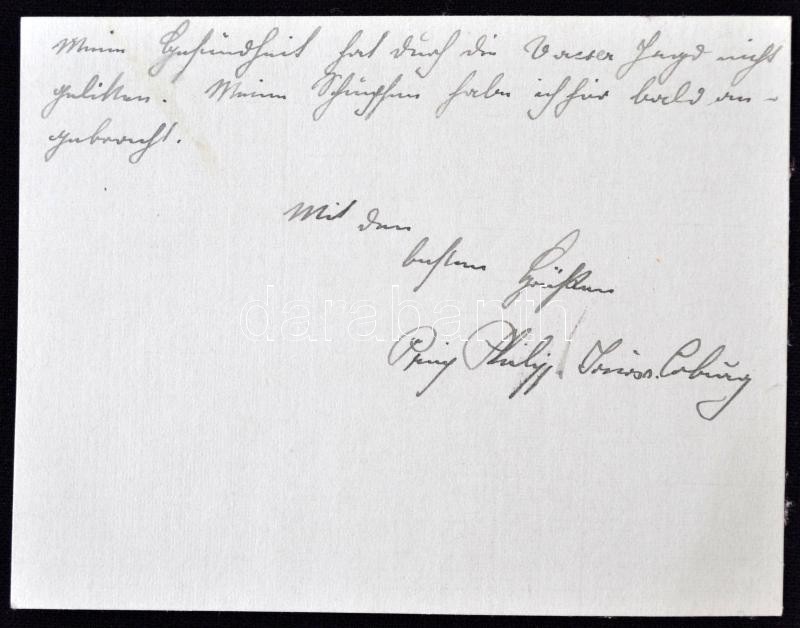 Meine Gesundheit hat durch die Vacser Jagd nicht
gelitten. Meine habe ich hier bald an-
gebracht.
Mit den
besten Grüßen
darabanth
Prinz Philipp Coburg